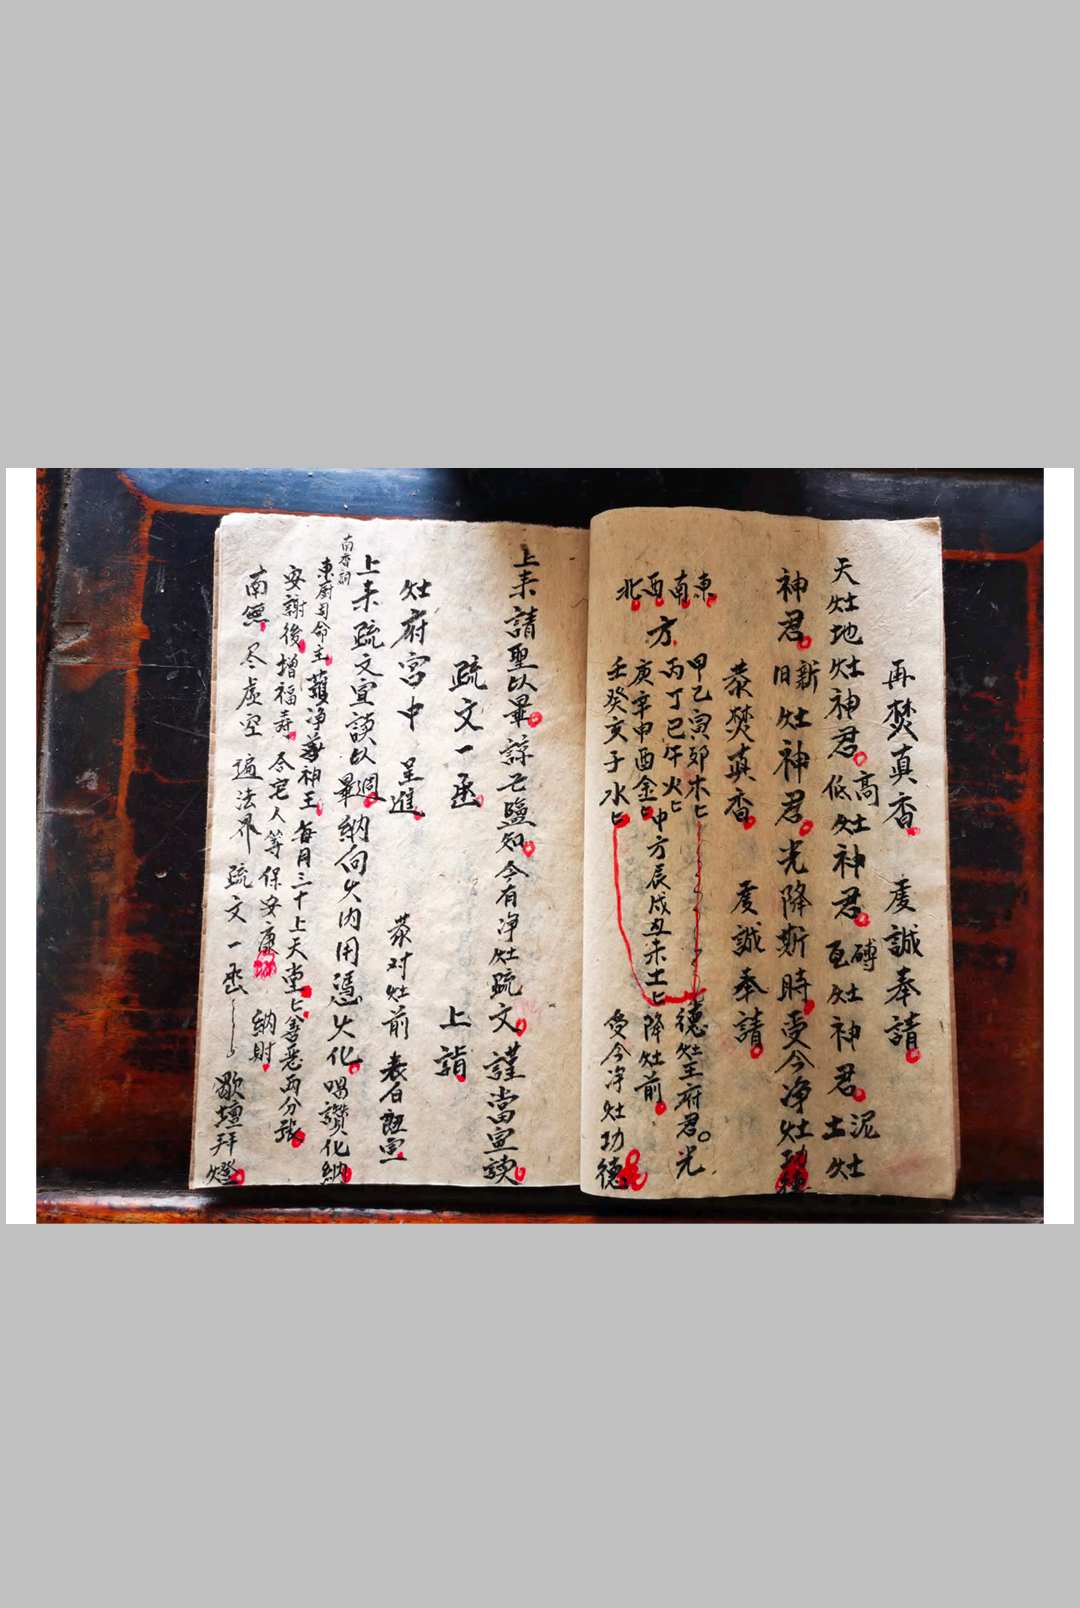 再焚真香 虔誠奉請
天灶地灶神君低高灶神君瓦磚灶神君土泥灶
神君旧新灶神君光降斯時受今净灶功德
恭焚真香 虔誠奉請
東南西北方
甲乙寅卯木匕
丙丁巳午火匕
庚辛申酉金匕
壬癸亥子水匕
中方辰戌丑未土匕
德灶王府君光
降灶前
受今净灶功德
上来請聖以畢諒亡鹽知今有净灶疏文謹當宣読
疏文一函 上詣
灶府宮中 呈進 恭对灶前表白 宣
上来疏文宣読以週畢納向火内用憑火化唱讚化納
南香詞
東厨司命主 净 神王每月三十上天堂匕善惡两分張
安謝後增福寿合宅人等保安康 納財
南無尽虛空遍法界疏文一函 歇壇拜燈